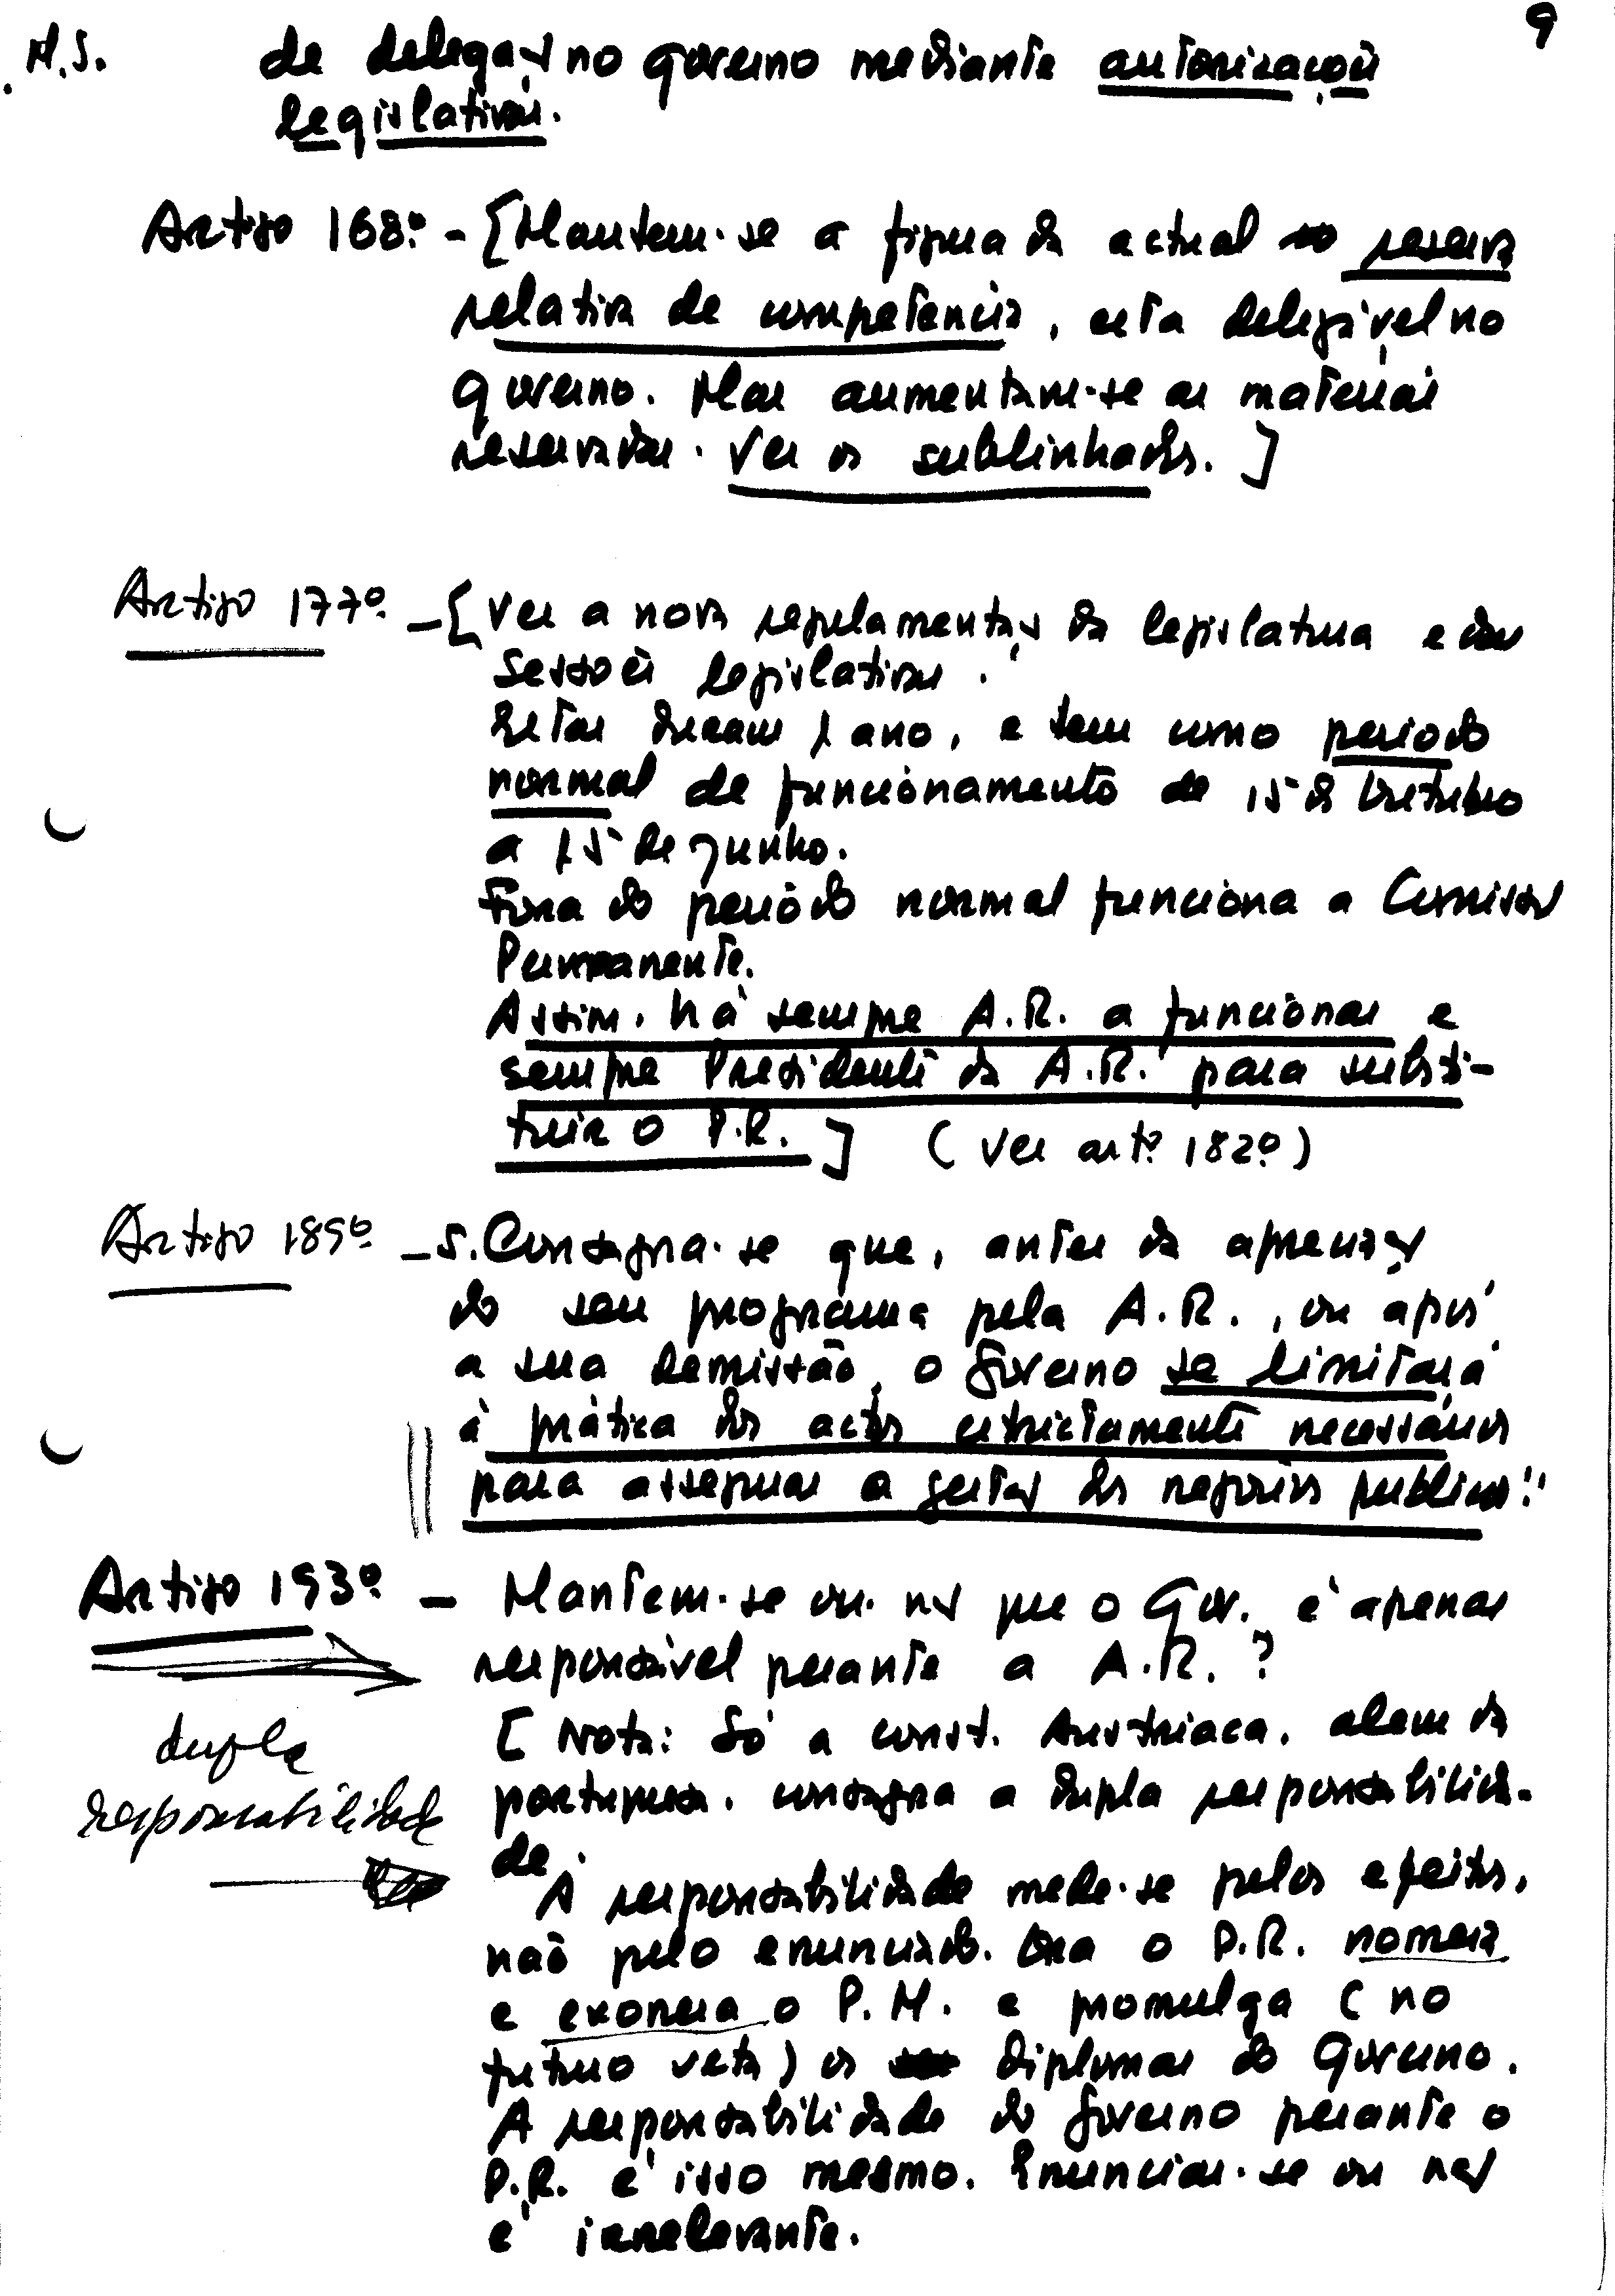 9
M.S. de delegação no governo mediante autorizações
legislativas.
Artigo 168º - [Mantem-se a figura da actual reserva
relativa de competência, esta delegável no
governo. Mas aumentam-se as matérias
reservadas. Ver os sublinhados.]
Artigo 177º - [Ver a nova regulamentação da legislatura e das
sessões legislativas.
Estas duram 1 ano, e tem como periodo
normal de funcionamento de 15 de Outubro
a 15 de Junho.
Fora do periodo normal funciona a Comissão
Permanente.
Assim, há sempre A.R. a funcionar e
sempre Presidente da A.R. para substi-
tuir o P.R.] (Ver artº 182º)
Artigo 189º - 5. Consagra-se que, antes da apreciação
do seu programa pela A.R., ou após
a sua demissão, o Governo se limitará
à prática dos actos estrictamente necessários
para assegurar a gestão dos negócios publicos"
Artigo 193º - Mantem-se ou não que o Gov. é apenas
responsável perante a A.R.?
dupla
responsabilidade
[Nota: Só a const. Austriaca, alem da
portuguesa, consagra a dupla responsabilida-
de.
A responsabilidade mede-se pelos efeitos,
não pelo enunciado. Ora o P.R. nomeia
e exonera o P.M. e promulga (no
futuro veta) os diplomas do Governo.
A responsabilidade do Governo perante o
P.R. é isso mesmo. Enunciar-se ou não
é irrelevante.